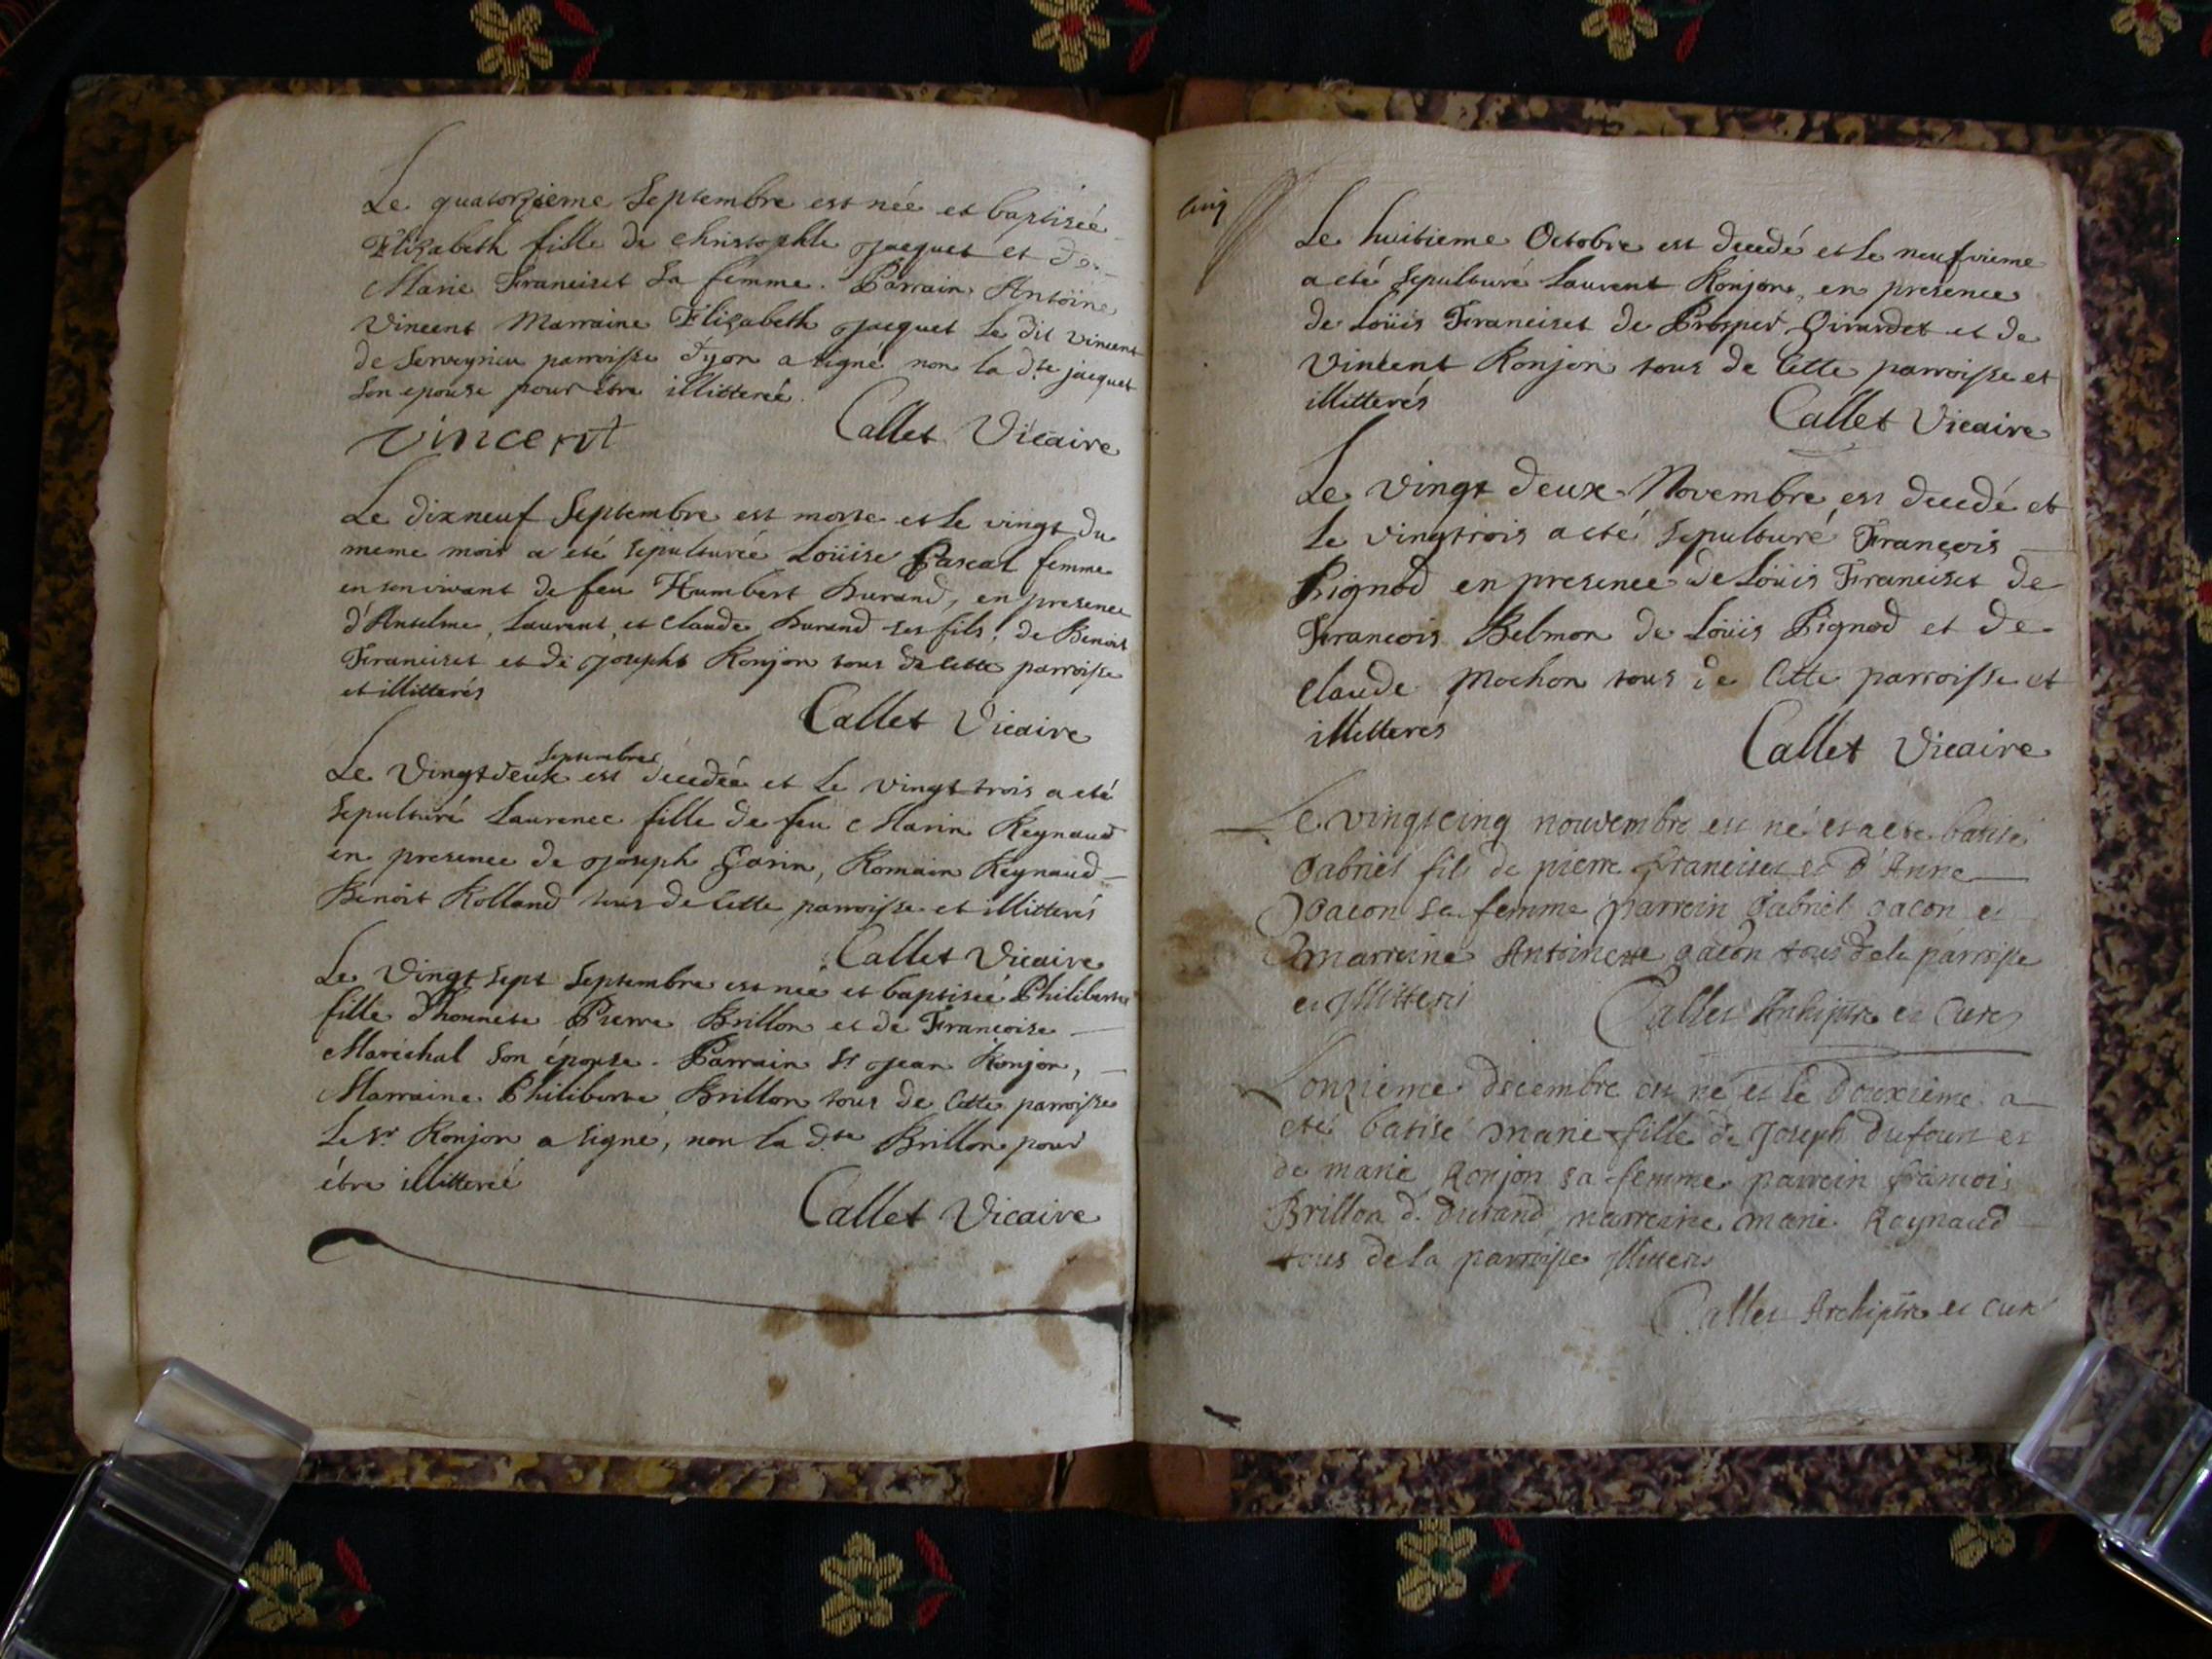 Le quatorzieme Septembre est née et baptisée
Elizabeth fille de christophle Jacquet et de
Marie Franciset sa femme. Parrain Antoine
Vincent Marraine Elizabeth Jacquet Le dit vincent
de Serveyrieu parroisse d'yon a signé non la d.te jacquet
son epouse pour être illitterée.
Vincent Callet Vicaire
Le dixneuf Septembre est morte et le vingt du
meme mois a eté sepulturée Loüise Pascal femme
en son vivant de feu Humbert Durand, en presence
d'Anselme, Laurent, et Claude Durand ses fils, de Benoit
Franciset et de Joseph Ronjon tous de cette parroisse
et illitterés
Callet Vicaire
Septembre
Le Vingtdeux est decedée et le vingt trois a eté
sepulturé Laurence fille de feu Marin Reynaud
en presence de Joseph Garin, Romain Reynaud
Benoit Rolland tous de cette parroisse et illitterés
Callet Vicaire
Le Vingt sept Septembre est née et baptisée Philiberte
fille d'honnete Pierre Brillon et de Francoise
Maréchal son épouse. Parrain Sr Jean Ronjon,
Marraine Philiberte Brillon tous de cette parroisse
Le Sr Ronjon a signé, non la d.te Brillon pour
être illitterée
Callet Vicaire
cinq
Le huitieme Octobre est decedé et le neufvieme
a eté sepulturé Laurent Ronjon, en presence
de Loüis Franciset de Prosper Girardet et de
Vincent Ronjon tous de cette parroisse et
illitterés
Callet Vicaire
Le vingt deux Novembre est decedé et
le vingtrois a eté sepulturé François
Pignod en presence de Loüis Franciset de
Francois Belmon de Loüis Pignod et de
Claude Mochon tous de cette parroisse et
illitterés
Callet Vicaire
Le vingtcinq nouvembre est né et a ete batisé
Gabriel fils de pierre franciset et d'Anne
Gacon sa femme parrein Gabriel gacon et
marreine Antoinette gacon tous de la parroisse
et illitteri
Callet Archiptre et Curé
Lonzieme decembre est né et le douxieme a
eté batisé marie fille de Joseph dufour et
de marie Ronjon sa femme parrein francois
Brillon d. Durand marreine marie Raynaud
tous de la parroisse illiteri
Callet Archiptre et curé